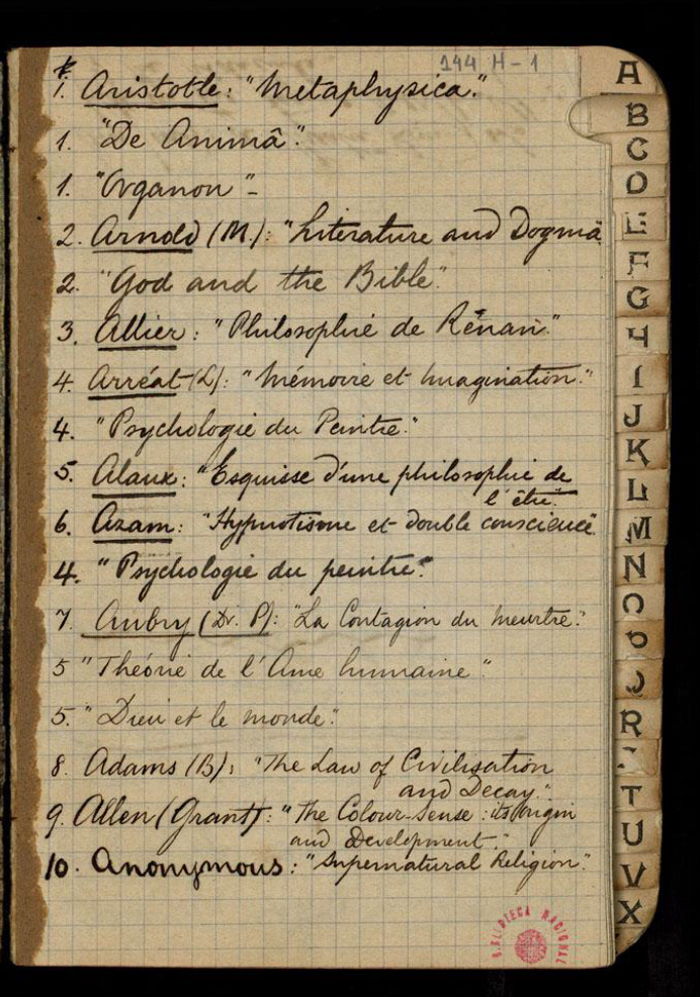 144 H-1
1. Aristotle: "Metaphysica."
1. "De Animâ".
1. "Organon"-
2. Arnold (M.): "Literature and Dogma
2. "God and the Bible".
3. Allier: "Philosophie de Rénan."
4. Arréat (L): "Mémoire et Imagination."
4. "Psychologie du Peintre."
5. Alaux: "Esquisse d'une philosophie de
l'être."
6. Azam: "Hypnotisme et double conscience".
4. "Psychologie du peintre."
7. Aubry (Dr. P): "La Contagion du meurtre."
5 "Théorie de l'Ame humaine".
5. "Dieu et le monde".
8. Adams (B): "The Law of Civilisation
and Decay."
9. Allen (Grant): "The Colour-Sense: its Origin
and Development."
10. Anonymous: "Supernatural Religion".
A
B
C
D
E
F
G
H
I
J
K
L
M
N
O
P
R
T
U
V
X
BIBLIOTECA NACIONAL